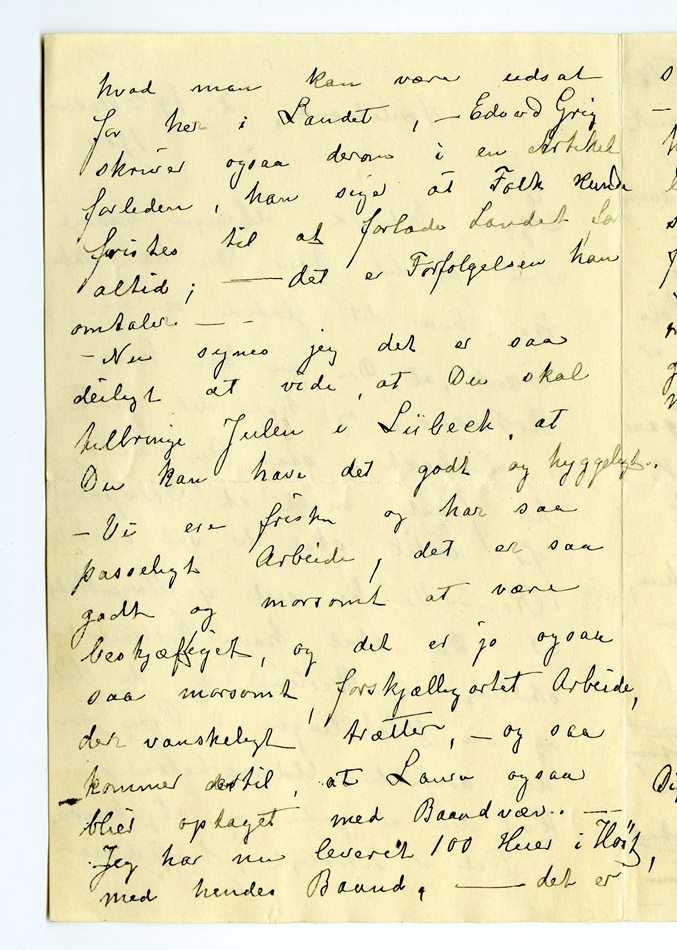 hvad man kan være udsat
for her i Landet, – Edvard Grig
skriver ogsaa derom i en Artikel
forleden, han siger at Folk kunde
fristes til at forlade Landet for
altid; — det er Forfølgelsen han
omtaler – –
– Nu synes jeg det er saa
deiligt at vide, at Du skal
tilbringe Julen i Lübeck, at
Du kan have det godt og hyggeligt.
– Vi ere friske og har saa
passeligt Arbeide, det er saa
godt og morsomt at være
beskjæftiget, og det er jo ogsaa
saa morsomt, forskjelligartet Arbeide,
der vanskeligt trætter, – og saa
kommer dertil, at Laura ogsaa
blier optaget med Baandvæv. –
Jeg har nu leveret 100 Huer i Høst,
med hendes Baand, — det er
s
–
Di